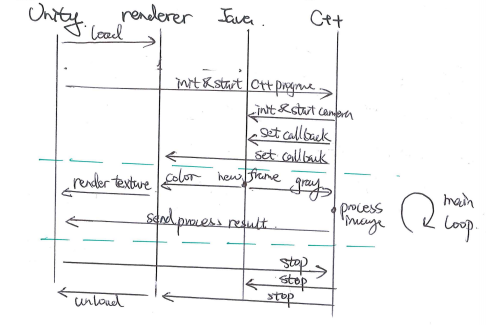 Unity renderer Java C++
load
init & start C++ programe
init & start camera
set callback
set callback
render texture color new frame gray
process image
main loop
send process result
stop
stop
unload stop